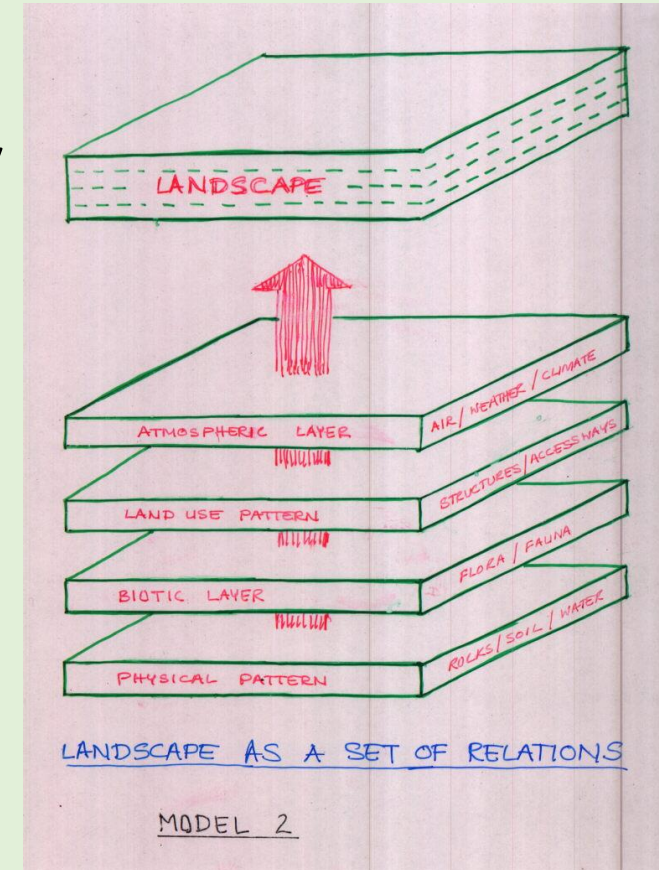 LANDSCAPE
ATMOSPHERIC LAYER
AIR/WEATHER/CLIMATE
LAND USE PATTERN
STRUCTURES/ACCESSWAYS
BIOTIC LAYER
FLORA / FAUNA
PHYSICAL PATTERN
ROCKS/SOIL/WATER
LANDSCAPE AS A SET OF RELATIONS
MODEL 2